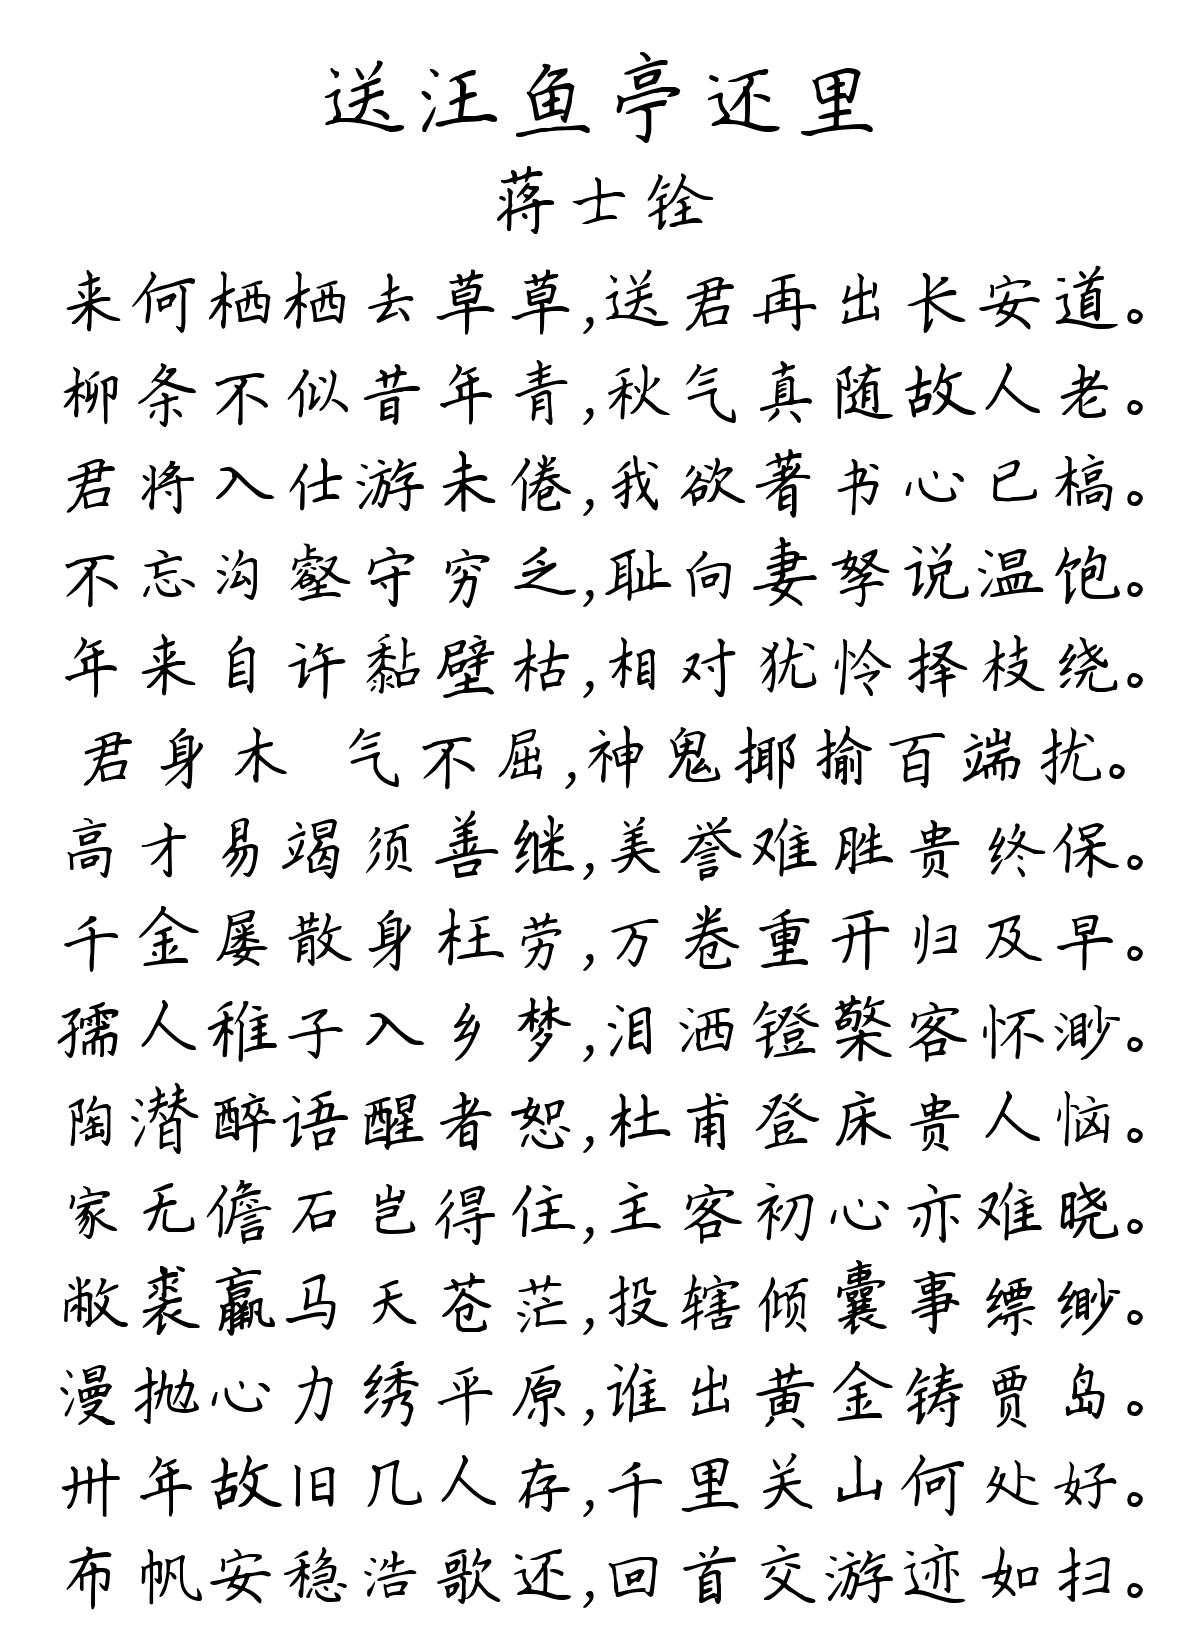 送汪鱼亭还里
蒋士铨
来何栖栖去草草,送君再出长安道。
柳条不似昔年青,秋气真随故人老。
君将入仕游未倦,我欲著书心已槁。
不忘沟壑守穷乏,耻向妻孥说温饱。
年来自许黏壁枯,相对犹怜择枝绕。
君身木 气不屈,神鬼揶揄百端扰。
高才易竭须善继,美誉难胜贵终保。
千金屡散身枉劳,万卷重开归及早。
孺人稚子入乡梦,泪洒镫檠客怀渺。
陶潜醉语醒者恕,杜甫登床贵人恼。
家无儋石岂得住,主客初心亦难晓。
敝裘羸马天苍茫,投辖倾囊事缥缈。
漫抛心力绣平原,谁出黄金铸贾岛。
卅年故旧几人存,千里关山何处好。
布帆安稳浩歌还,回首交游迹如扫。